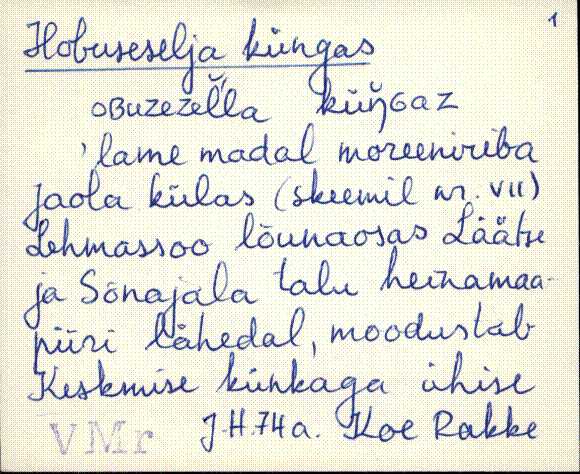 1
Hobuseselja küngas
OBUZEZEĽĽa küŋGAZ
'lame madal moreeniriba
Jaola külas (skeemil nr. VII)
Lehmassoo lõunaosas Läätse
ja Sõnajala talu heinamaa-
piiri lähedal, moodustab
Keskmise künkaga ühise
VMr J.H.74a. Koe Rakke